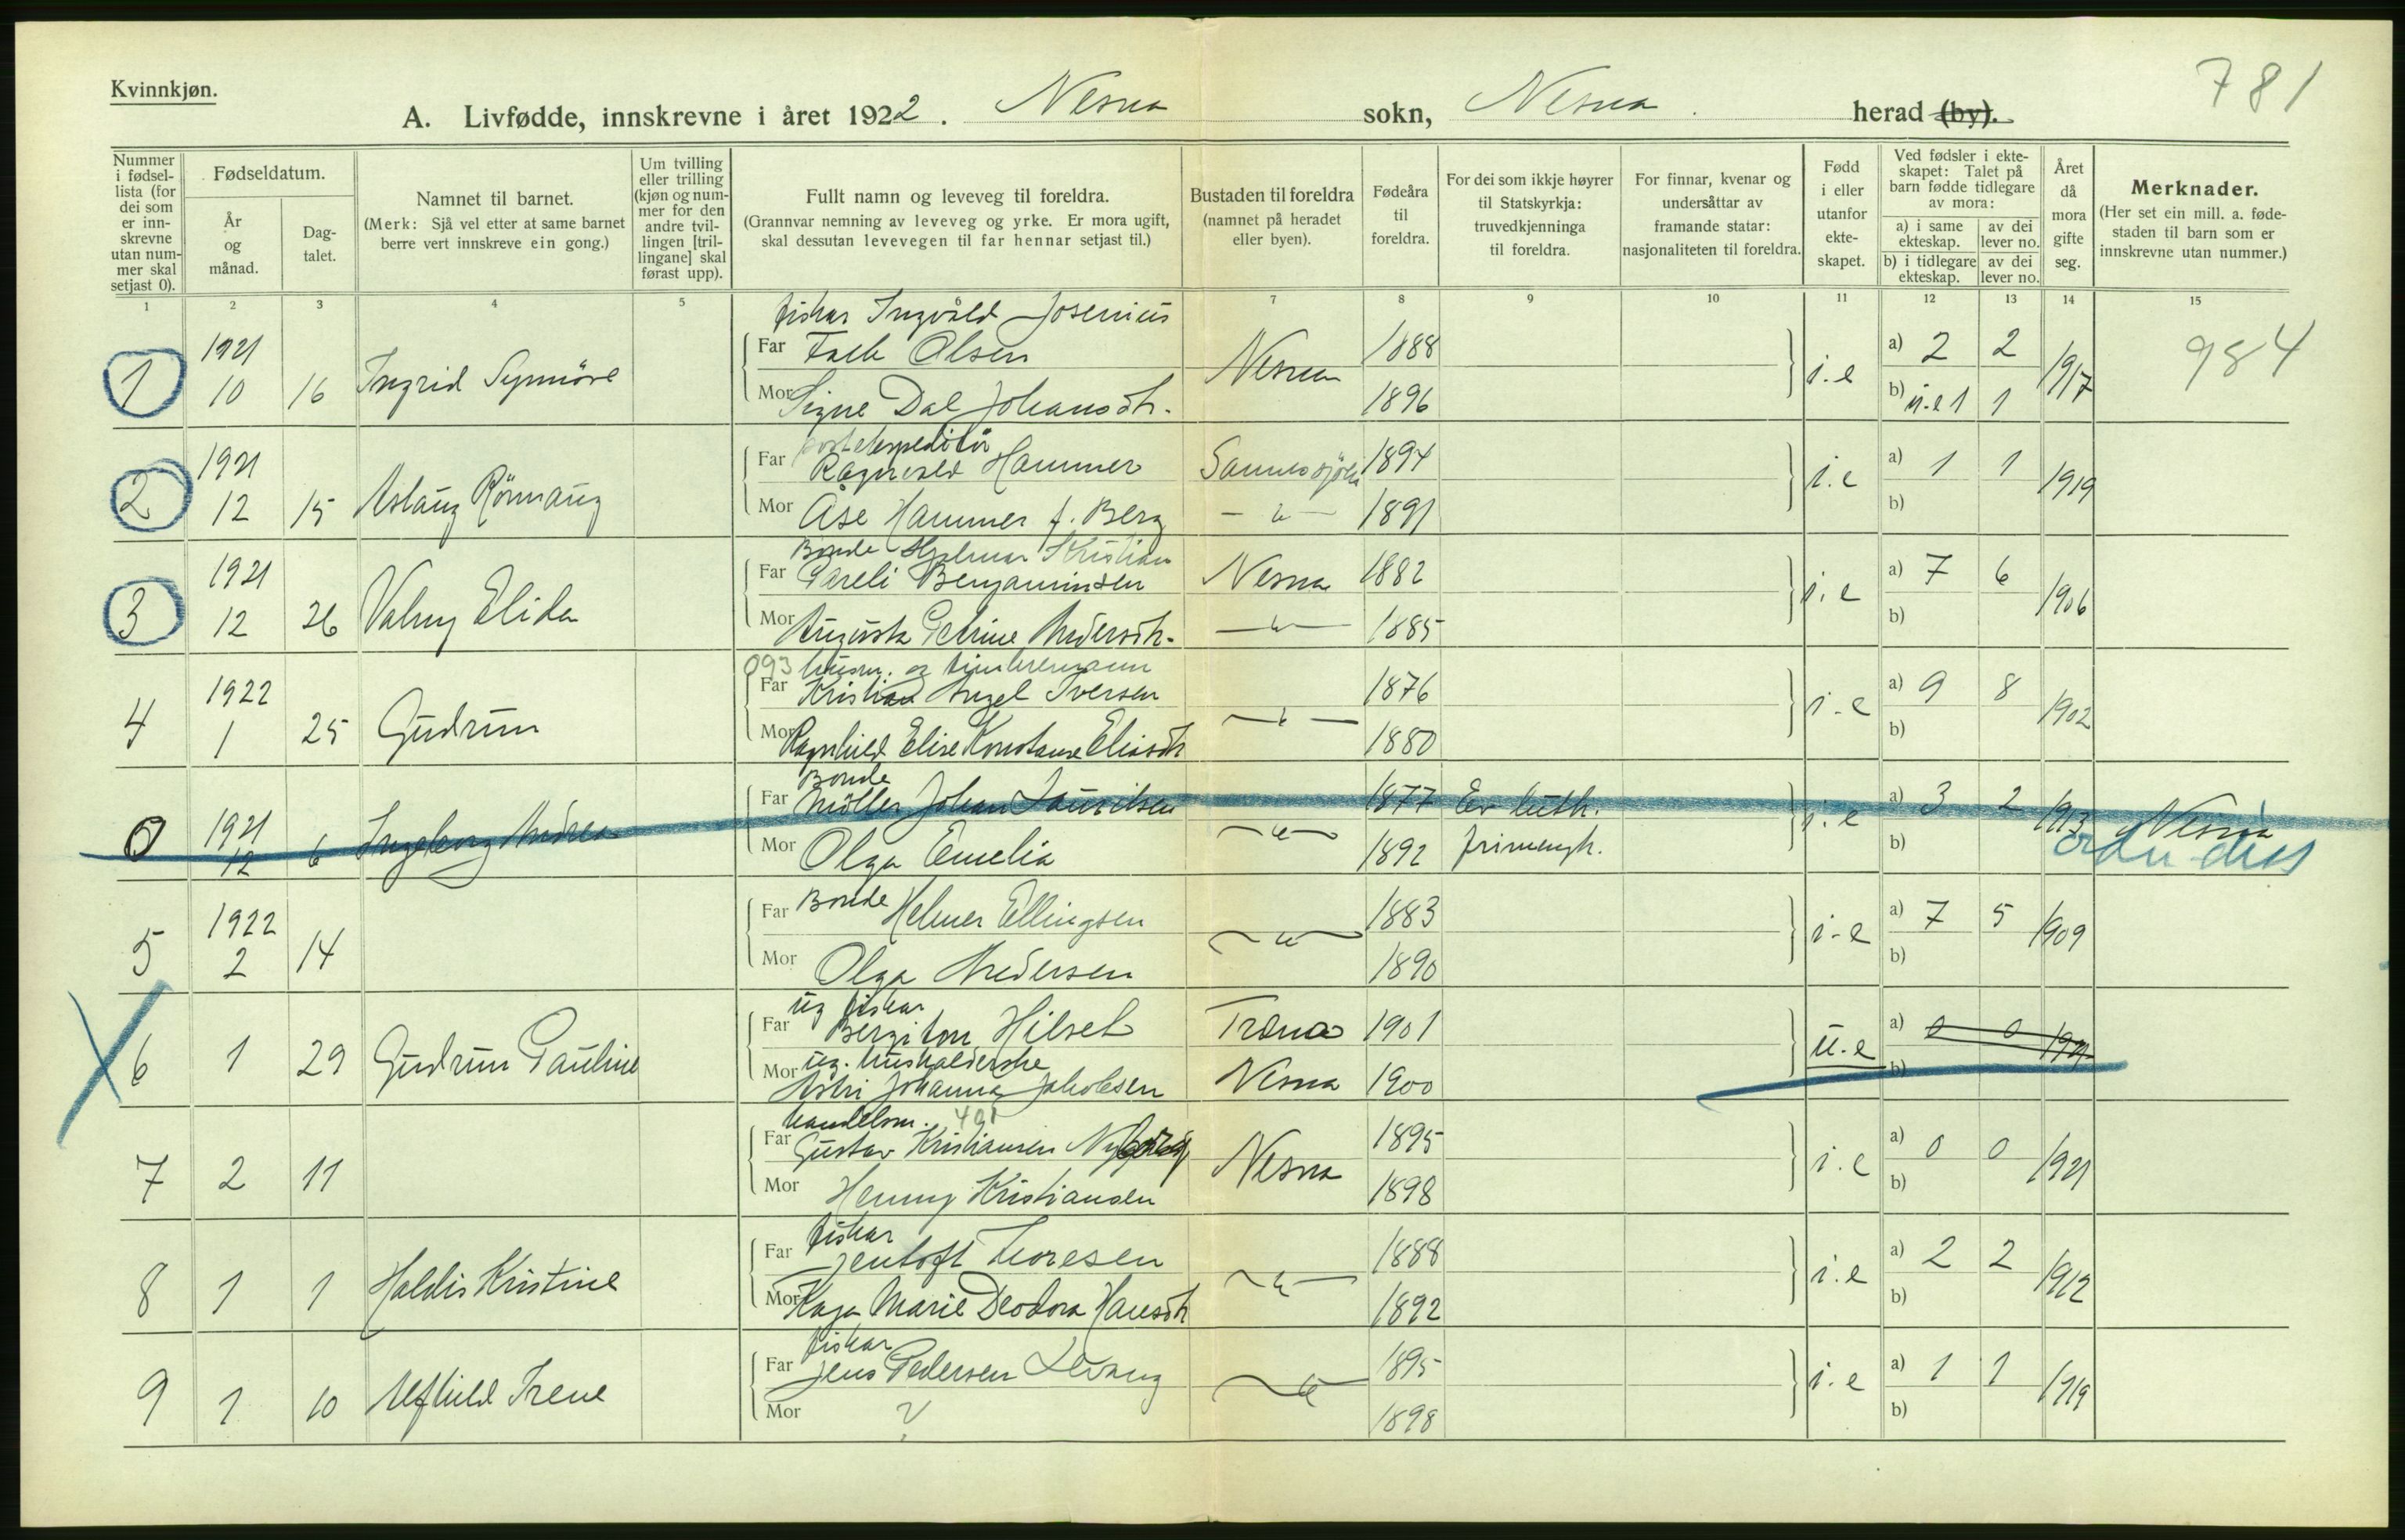 781
Kvinnkjøn.
A. Livfødde, innskrevne i året 1922. Nesna sokn, Nesna herad (by).
Nummer i fødsel-lista (for dei som er inn-skrevne utan num-mer skal setjast 0).
Fødseldatum.
År og månad.
Dag-talet.
Namnet til barnet.
(Merk: Sjå vel etter at same barnet berre vert innskreve ein gong.)
Um tvilling eller trilling (kjøn og num-mer for den andre tvil-lingen [tril-lingane] skal førast upp).
Fullt namn og leveveg til foreldra.
(Grannvar nemning av leveveg og yrke. Er mora ugift, skal dessutan levevegen til far hennar setjast til.)
Bustaden til foreldra (namnet på heradet eller byen).
Fødeåra til foreldra.
For dei som ikkje høyrer til Statskyrkja: truvedkjenninga til foreldra.
For finnar, kvenar og undersåttar av framande statar: nasjonaliteten til foreldra.
Fødd i eller utanfor ekte-skapet.
Ved fødsler i ekte-skapet: Talet på barn fødde tidlegare av mora:
a) i same ekteskap. av dei lever no.
b) i tidlegare ekteskap. av dei lever no.
Året då mora gifte seg.
Merknader.
(Her set ein mill. a. føde-staden til barn som er innskrevne utan nummer.)
1 2 3 4 5 7 8 9 10 11 12 13 14 15
fiskar Ingvald Josenius
1 1921 10 16 Ingrid Synnöve Far Falk Olsen Nesna 1888 i.e a) 2 2 1917 984
Mor Signe Dal Johansdtr. 1896 b) u.e 1 1
postekspeditör
2 1921 12 15 Aslaug Rönnaug Far Ragnvald Hammer Sannessjöen 1894 i.e a) 1 1 1919
Mor Åse Hammer f. Berg - " - 1891 b)
Bonde Hjalmar Kristian
3 1921 12 26 Valny Elida Far Pareli Benjaminsen Nesna 1882 i.e a) 7 6 1906
Mor Augusta Petrine Andersdtr. - " - 1885 b)
093 husm. og timbremann
4 1922 1 25 Gudrun Far Kristian Angel Iversen - " - 1876 i.e a) 9 8 1902
Mor Ragnhild Elise Konstanse Eliasdtr 1880 b)
Bonde
0 1921 12 6 Ingeborg Andrea Far Möller Johan Lauritsen - " - 1877 Ev luth. i.e a) 3 2 1913 Nesna
Mor Olga Emelia 1892 frimengh. b)
5 1922 2 14 Far Bonde Helmer Ellingsen - " - 1883 i.e a) 7 5 1909
Mor Olga Andersen 1890 b)
ug fiskar
6 1 29 Gudrun Pauline Far Bergiton Hilset Træna 1901 u.e a) 0 0 1921
ug. husholderske
Mor Astri Johanna Jakobsen Nesna 1900 b)
handelsm. 401
7 2 11 Far Gustav Kristiansen Nesna 1895 i.e a) 0 0 1921
Mor Henny Kristiansen 1898 b)
fiskar
8 1 1 Haldis Kristine Far Jentoft Toresen - " - 1888 i.e a) 2 2 1912
Mor Kaja Marie Deodora Hansdtr 1892 b)
fiskar
9 1 10 Alfhild Irene Far Jens Pedersen Levang - " - 1895 i.e a) 1 1 1919
Mor ? 1898 b)